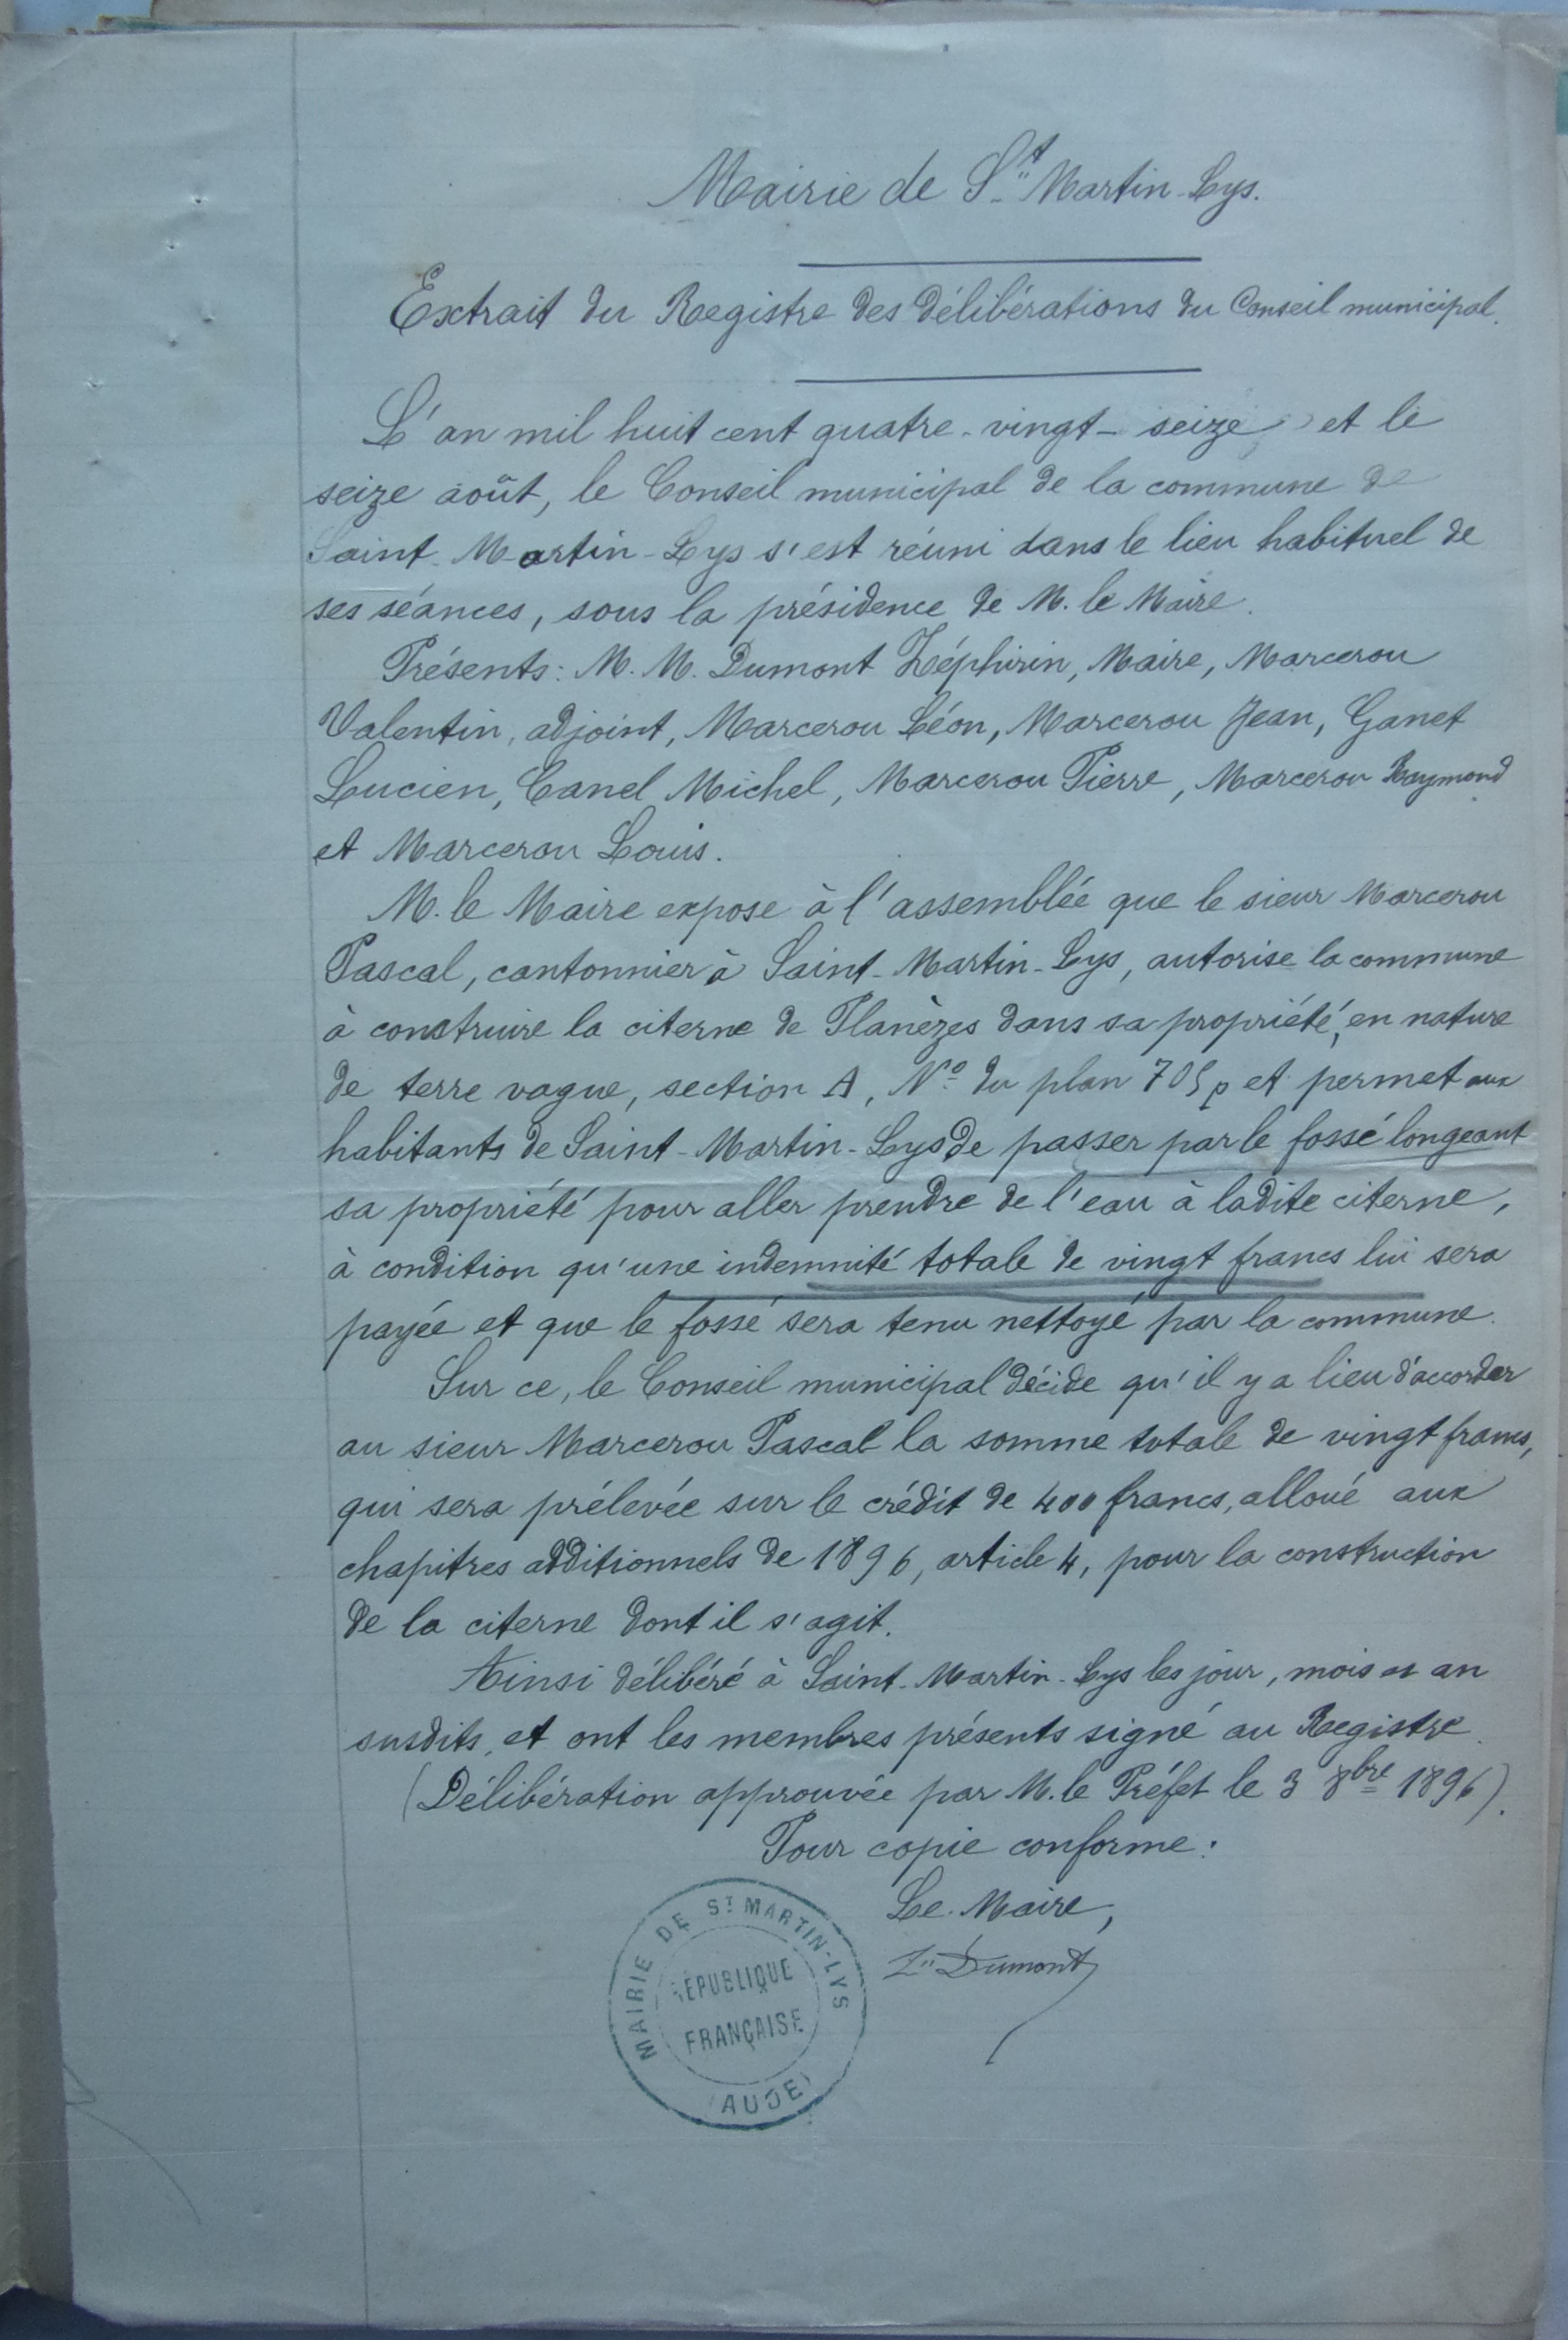 Mairie de St Martin-Lys.
Extrait du Registre des délibérations du Conseil municipal.
L'an mil huit cent quatre-vingt-seize et le
seize août, le Conseil municipal de la commune de
Saint-Martin-Lys s'est réuni dans le lieu habituel de
ses séances, sous la présidence de M. le Maire.
Présents: M. M. Dumont Zéphirin, Maire, Marcerou
Valentin, adjoint, Marcerou Léon, Marcerou Jean, Ganet
Lucien, Canel Michel, Marcerou Pierre, Marcerou Raymond
et Marcerou Louis.
M. le Maire expose à l'assemblée que le sieur Marcerou
Pascal, cantonnier à Saint-Martin-Lys, autorise la commune
à construire la citerne de Planèzes dans sa propriété, en nature
de terre vague, section A, No du plan 705p et permet aux
habitants de Saint-Martin-Lys de passer par le fossé longeant
sa propriété pour aller prendre de l'eau à ladite citerne,
à condition qu'une indemnité totale de vingt francs lui sera
payée et que le fossé sera tenu nettoyé par la commune.
Sur ce, le Conseil municipal décide qu'il y a lieu d'accorder
au sieur Marcerou Pascal la somme totale de vingt francs,
qui sera prélevée sur le crédit de 400 francs, alloué aux
chapitres additionnels de 1896, article 4, pour la construction
de la citerne dont il s'agit.
Ainsi délibéré à Saint-Martin-Lys les jour, mois et an
susdits, et ont les membres présents signé au Registre.
(Délibération approuvée par M. le Préfet le 3 8bre 1896).
Pour copie conforme:
Le Maire,
Zin Dumont
MAIRIE DE ST MARTIN-LYS
RÉPUBLIQUE
FRANÇAISE
(AUDE)